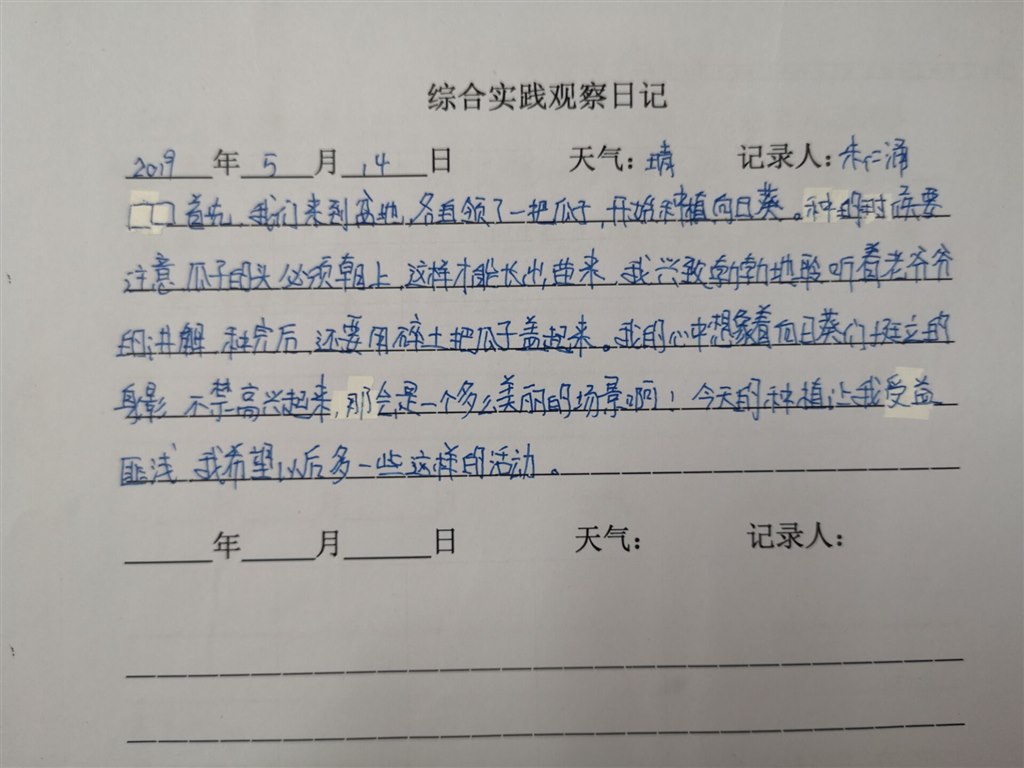 综合实践观察日记
2019年5月14日 天气：晴 记录人：朱仁涌
首先，我们来到营地，各自领了一把瓜子，开始种植向日葵。种的时候要
注意瓜子的头必须朝上，这样才能长出苗来，我兴致勃勃地聆听着老爷爷
的讲解，种完后，还要用碎土把瓜子盖起来。我的心中想象着向日葵们挺立的
身影，不禁高兴起来，那会是一个多么美丽的场景啊！今天的种植让我受益
匪浅，我希望以后多一些这样的活动。
年 月 日 天气： 记录人：